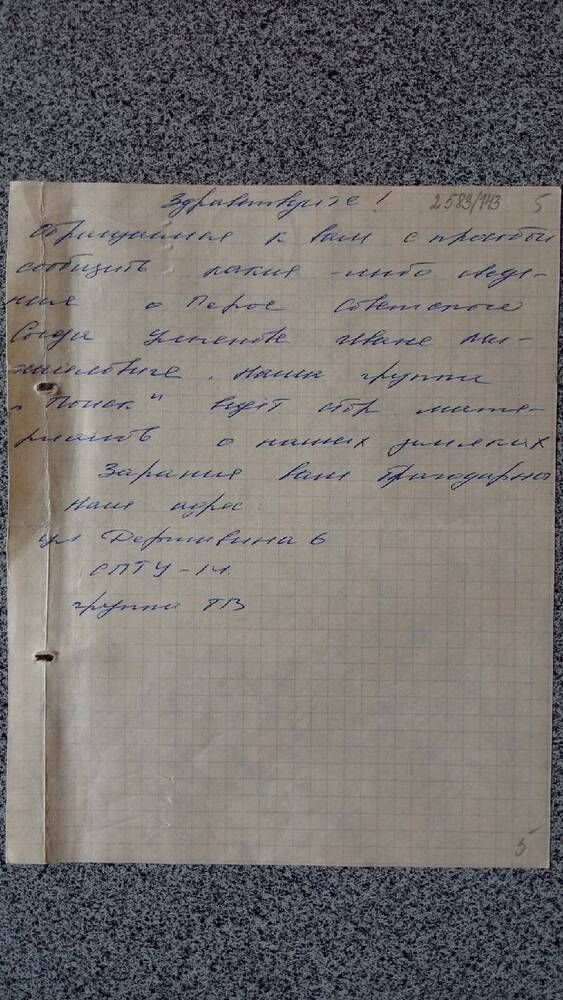 Здравствуйте! 2583/143 5
Обращаемся к вам с просьбой
сообщить какие-либо сведе-
ния о Герое Советского
Союза Иване Ми-
хайловиче. Наша группа
"Поиск" ведёт сбор мате-
риалов о наших земляках
Зарание вам благодарны
Наш адрес
ул Державина 6
СПТУ-14
группа
5